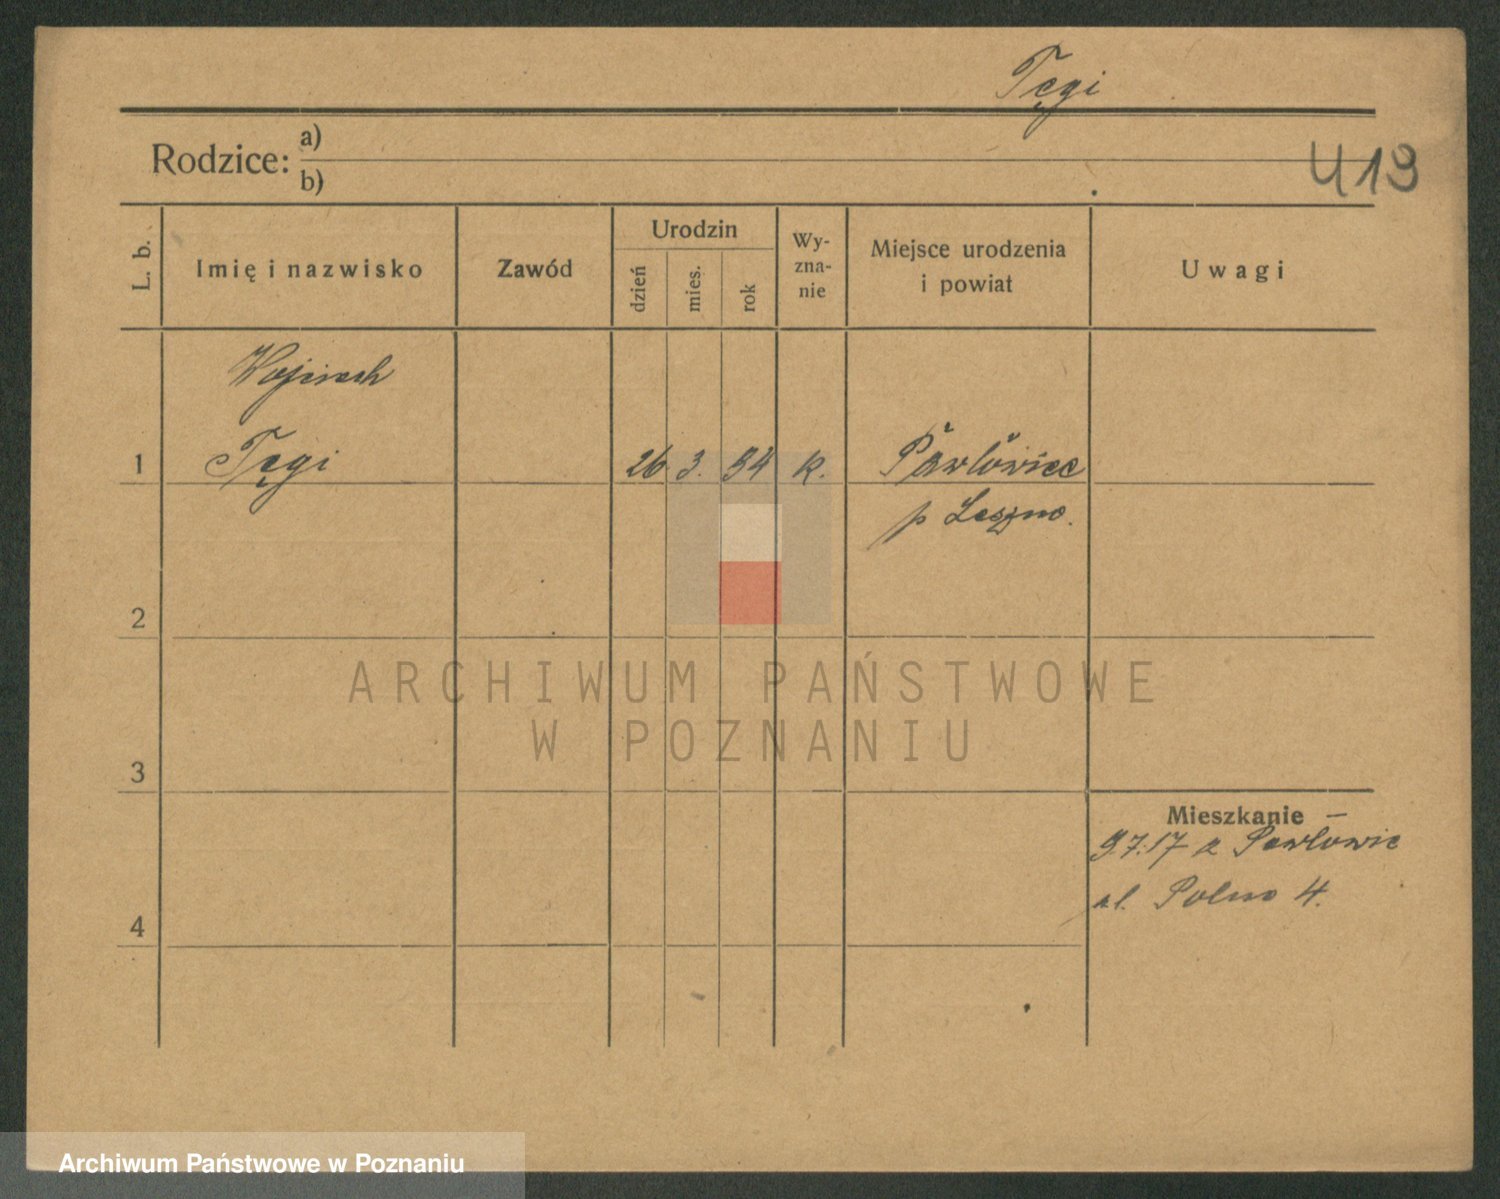 Tęgi
Rodzice: a)
b)
413
L. b.
Imię i nazwisko
Zawód
Urodzin
dzień
mies.
rok
Wy-
zna-
nie
Miejsce urodzenia
i powiat
Uwagi
Wojciech
1 Tęgi 26 3. 94 k. Pawłowice
p Leszno.
2
ARCHIWUM PAŃSTWOWE
W POZNANIU
3
Mieszkanie –
9.7.17 z Pawłowic
ul. Polna 4.
4
Archiwum Państwowe w Poznaniu